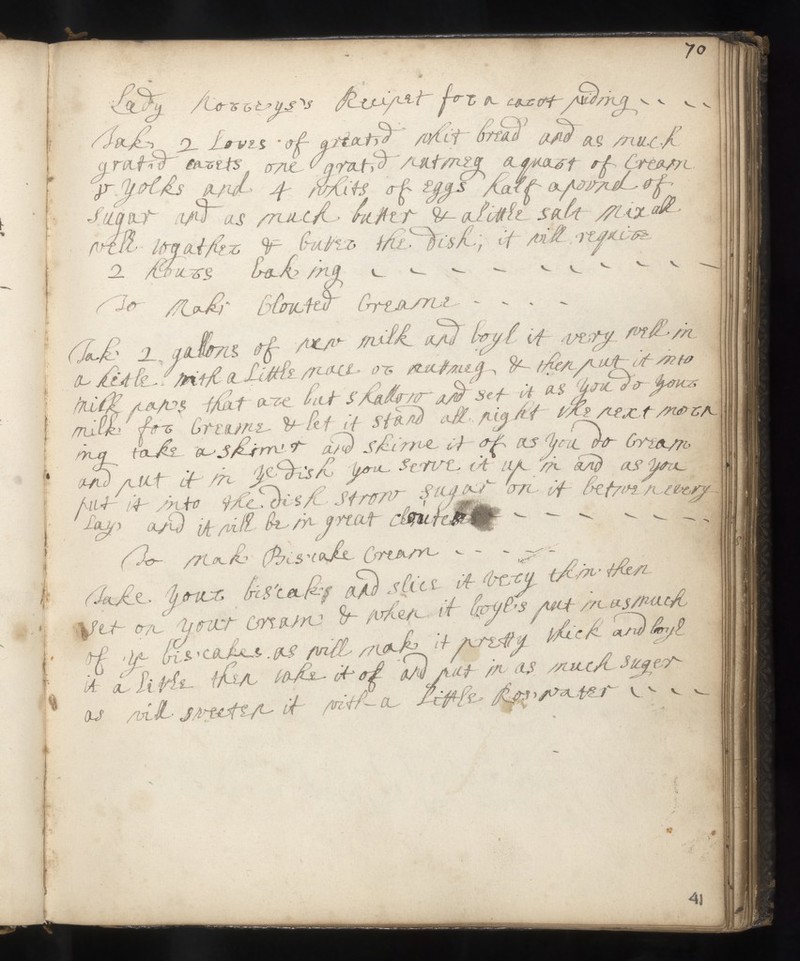 70
Lady Norreys's Recipet for a carot puding
Take 2 Loves of greated whit bread and as much
grated carets one grated nutmeg a quart of Cream
8 yolks and 4 whits of eggs half a pound of
sugar and as much butter & a little salt Mix all
well togather & buter the dish, it will require
2 houres bak ing
To Make Clouted Creame
Take 2 gallons of new milk and boyl it very well in
a kitle with a Little mace or nutmeg & then put it into
milk pans that are but shallow and set it as you do your
milk for Creame & let it stand all night the next morn
ing take a skimer and skime it of as you do Cream
and put it in ye dish you serve it up in and as you
put it into the dish strow sugar on it betwen every
Lay and it will be in great clouter
To mak Biscake Cream
Take your biscaks and slice it very thin then
set on your cream & when it boyles put in as much
of ye biscakes as will make it pretty thick and boyl
it a litle then take it of and put in as much suger
as will sweeten it with a Little Roswater
41